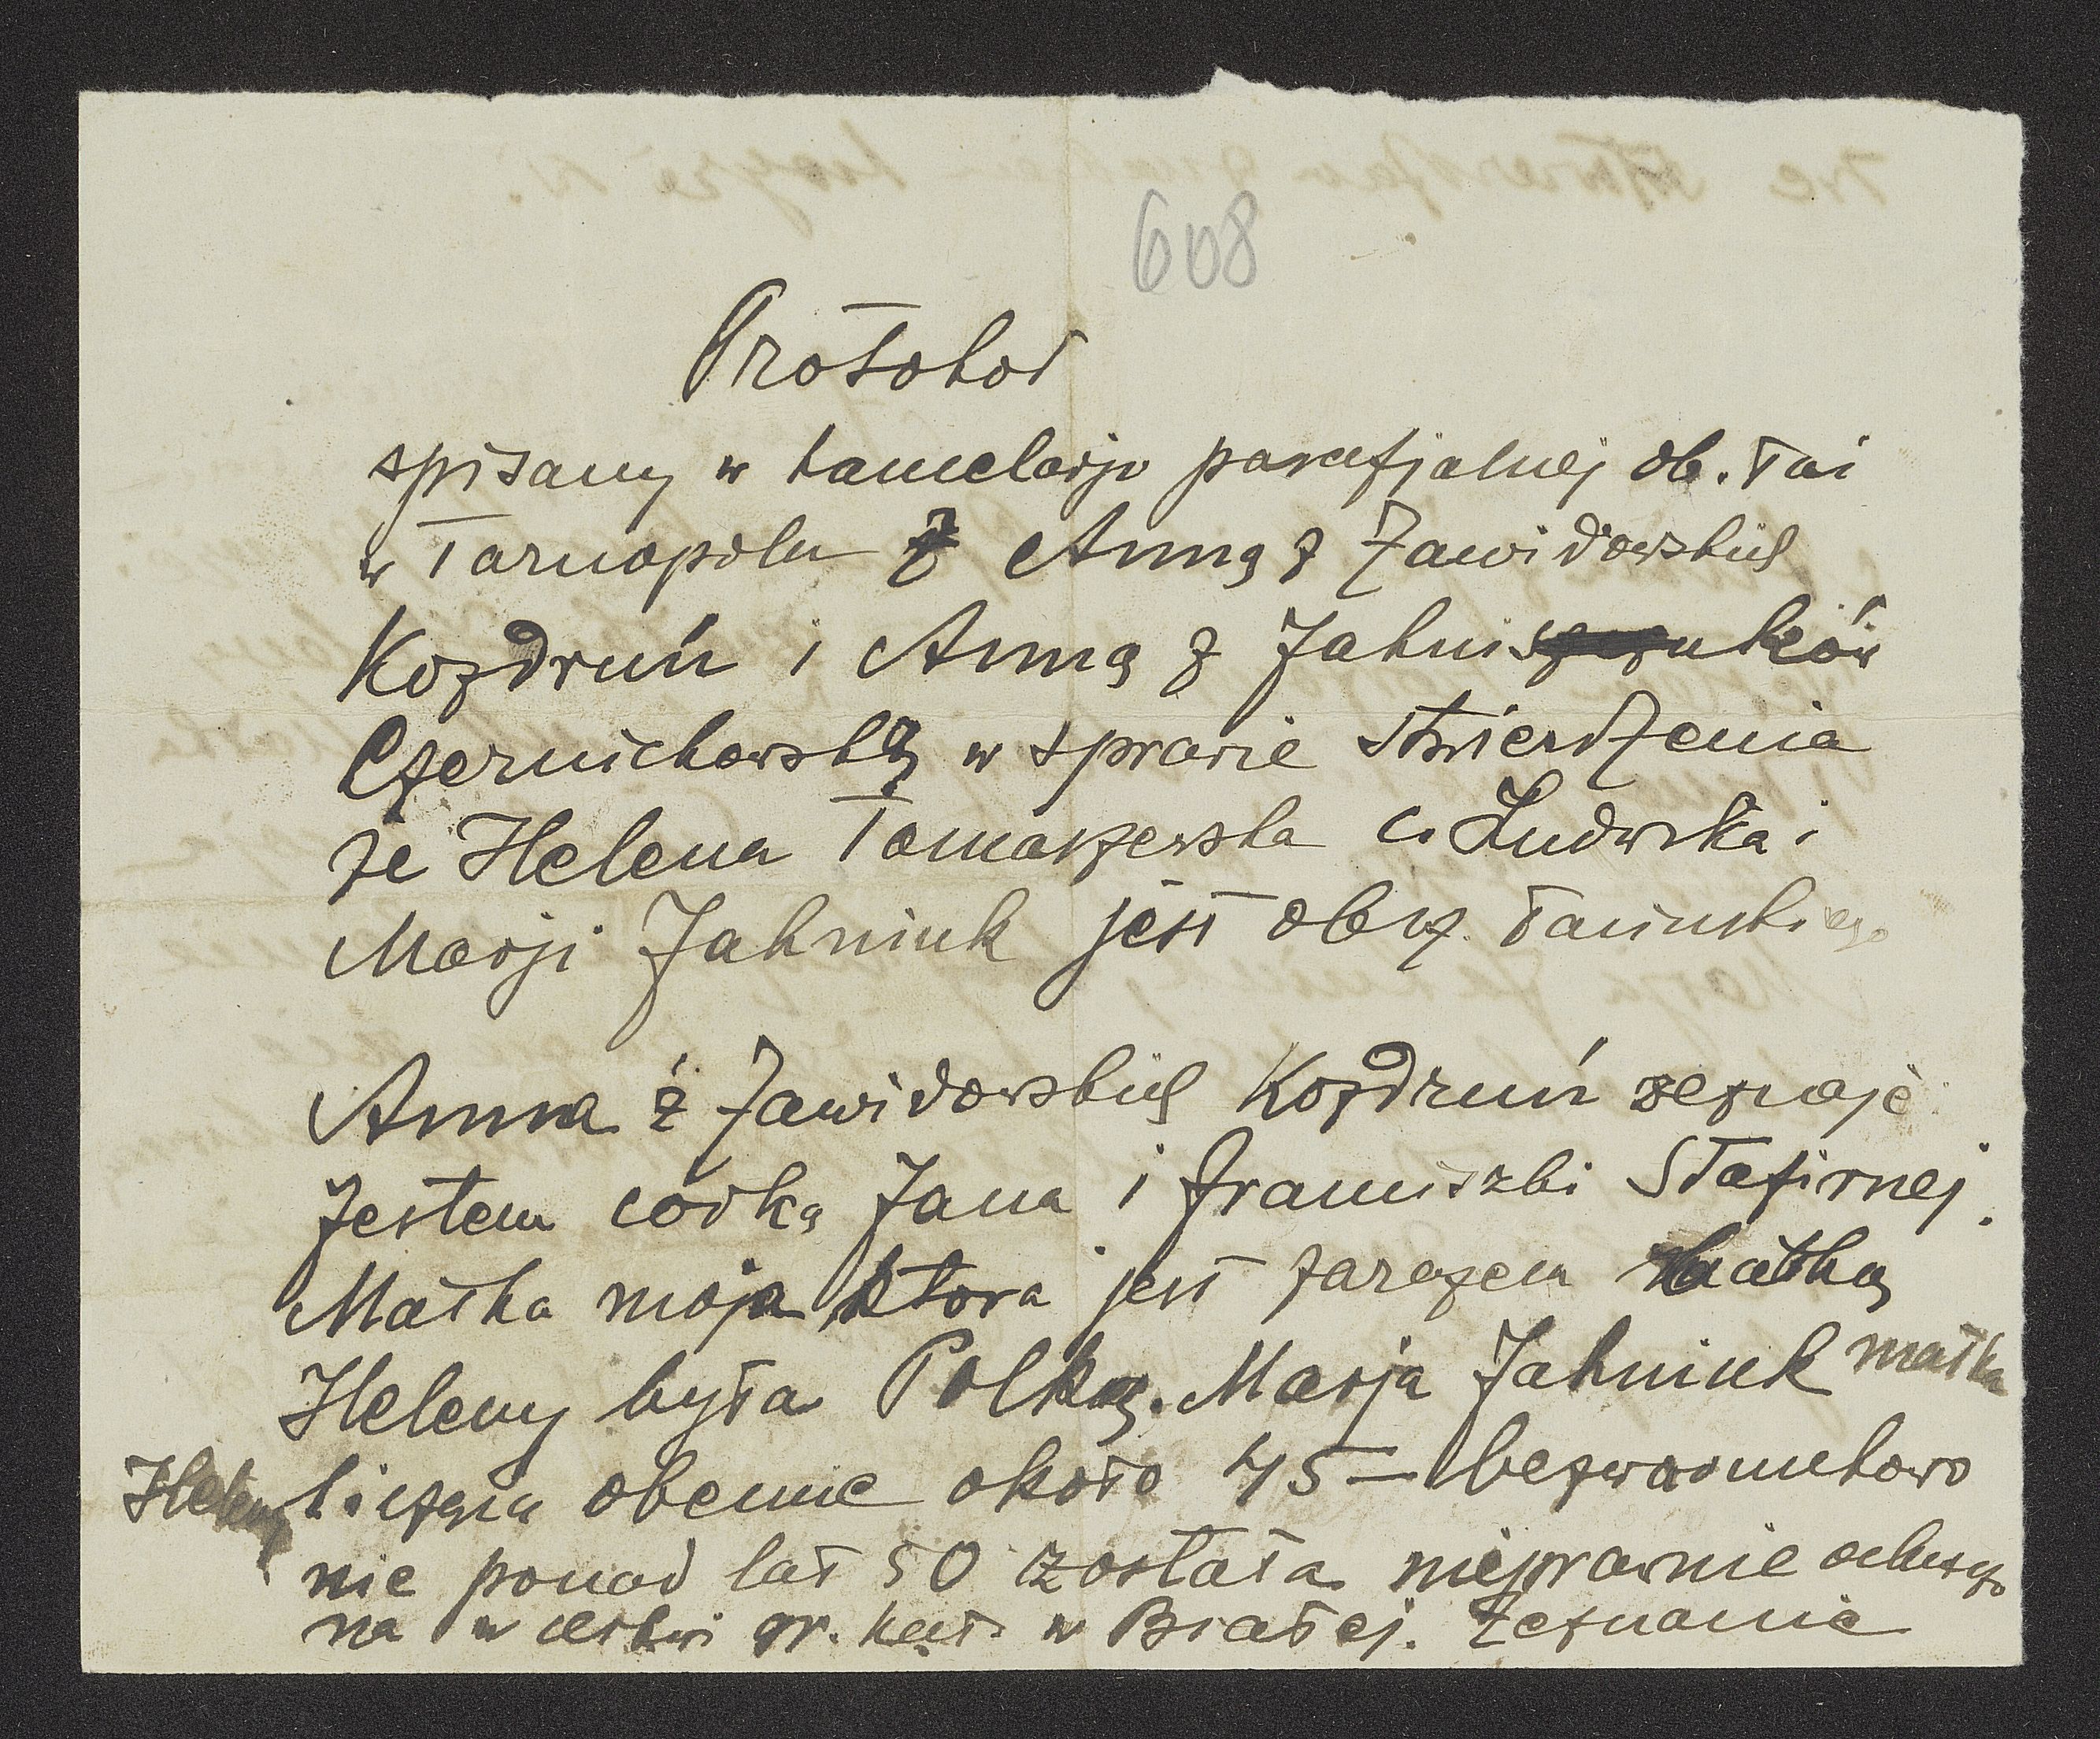 608
Protokoł
spisany w kancelarji parafjalnej ob. łać
w Tarnopolu z Anną z Zawidowskich
Kozdruń i Anną z Jakniuków
Czernichowską w sprawie stwierdzenia
że Helena Tomaszewska c. Ludwika i
Marji Jakniuk jest obrz. łacińskiego
Anna z Zawidowskich Kozdruń zeznaje
Jestem córką Jana i Franciszki Stafirnej.
Matka moja która jest zarazem matką
Heleny była Polką. Marja Jakniuk matka
Heleny licząca obecnie około 45 – bezwarunkowo
nie ponad lat 50 została nieprawnie ochrzczo
na w cerkwi gr. kat. w Białej. Zeznanie